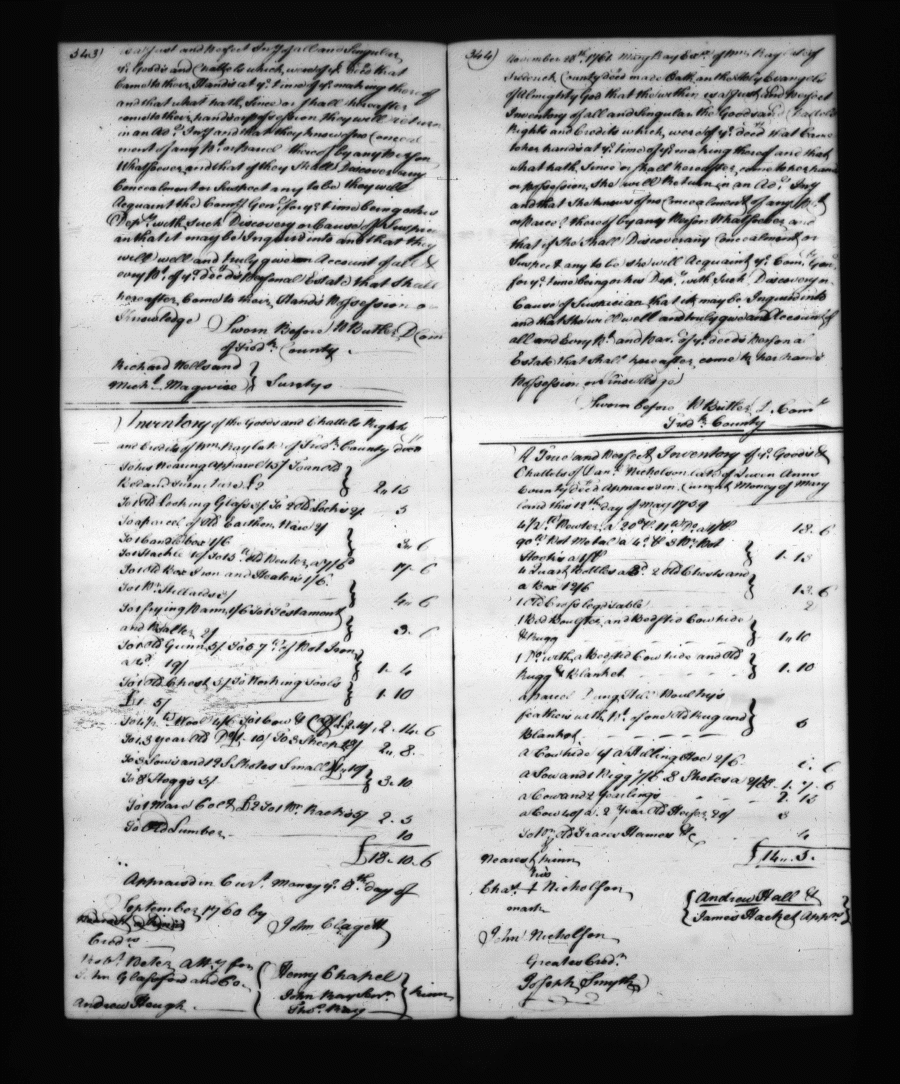 343)
is a Just and Perfect Invy of all and Singular
ye Goods and Chattels which were of ye Decd that
Came to their Hands at ye time of ye making thereof
and that what hath Since or shall hereafter
come to their hands or possession they will return
in an Add Invy and that they know of no Conceal
ment of any pt or parcel thereof by any Person
Whatsoever and that if they Shall Discover any
Concealment or Suspect any to be they will
Acquaint the Commy Genl for ye time being or his
Depty with Such Discovery or Cause of Suspicion
an that it may be Inquired into and that they
will well and truly give an Account of all &
every pt of ye Deceds Personal Estate that Shall
hereafter Come to their Hands Possession or
Knowledge
Sworn Before W Butler D Com
of Fredk County
Richard Wells and
Michl Magowise } Suretys
Inventory of the Goods and Chattels Rights
and Credits of Wm Ray late of Fredk County decd
To his Wearing Apparel 15/ To an old
Bed and Furniture £2 } 2 " 15
To 1 old Looking Glass 1/ To 2 Old Locks 2/ 3
To a parcel of Old Earthen Ware 2/
To 1 Candle box 1/6 } 3 " 6
To 1 Hackle To 13 lb old Pewter a 7/6
To 1 Old Box Iron and Heaters 1/6 17 " 6
To 1 Pr Stilliards
To 1 frying Pann 1/6 To 1 Testament } 4 " 6
and Psalter 2/ } 3 " 6
To 1 old Gunn 5/ To 57 lb of Pot Iron
a 4d 19/ } 1 " 4
To 1 Old Chest 5/ To Working Tools
£1 5/ } 1 " 10
To 4½ lb Wool 4/6 To 1 Cow & Calf £2 10/ 2 " 14 " 6
To 1 3 year Old 10/ To 3 Sheep 2 " 8
To 3 Sows and 12 Shotes Small
To 8 Hoggs } 3 " 10
To 1 Mare Colt £2 To 1 Mr Back 5/ 2 " 5
To Old Lumber 10
£18 " 10 " 6
Appraisd in Curt Money ye 8th day of
September 1760 by
John Clagett
Credrs
Robt Peter Atty for
John Glassford and Co
Andrew Heugh
Henny Chapel
John Ray Senr } kinn
Thos Ray
344)
November 18th 1761 Mary Ray Exx of Wm Ray late of
Frederick County decd made Oath on the Holy Evangels
of Almighty God that the within is a Just and Perfect
Inventory of all and Singular the Goods and Chattels
Rights and Credits which were of ye decd that Came
to her hands at ye time of ye making thereof and that
what hath Since or shall hereafter come to her hand
or possession She will return in an Add Invy
and that She knows of no Concealment of any Pt
or Parcl thereof by any Person Whatsoever and
that if She Shall Discover any Concealment or
Suspect any to be She will Acquaint ye Comy Genl
for ye time being or his Depty with Such Discovery or
Cause of Suspician that it may be Inquired into
and that She will well and truly give an Account of
all and Every Pt and Par. of ye deceds Persona
Estate that Shall hereafter come to her hands
Possession or Knowledge
Sworn before W Butler D Comy
Fredk County
A True and Perfect Inventory of ye Goods &
Chattels of Danl Nicholson late of Queen Anns
County decd Appraised in Current Money of Mary
land this 12th day of May 1759
4½ lb Pewter a 20d 11 lb Do a 1/ 18 " 6
90 lb Pot Metal a 4d 3 Pr Pot
Hooks } 1 " 13
4 Quart Bottles a 3d 2 old Chests and
a Box 12/6 } 13 " 6
1 Old Cross legd table 2
1 Bed Boulster and Bedsted Cow hide
& Rugg } 1 " 10
1 Do with a Bedsted Cow hide and Old
Rugg & Blanket } 1 " 10
a parcel Poultrys
feathers with pt of one Old Rug and
Blanket } 6
a Cow hide a Hilling Hoe 2/6 6
a Sow and 1 Pigg 7/6 8 Shotes a 2/6 1 " 7 " 6
a Cow and 2 Yearlings 2 " 15
a Cow 40/ a 2 Year Old Heifer 20/ 3
To Pr Old Traces Hames &c 4
£14 " 5 "
Nearest kinn
his
Chas + Nicholson
mark
John Nicholson
Greatest Credr
Joseph Smyth
{ Andrew Hall &
James Hacket Apprs }